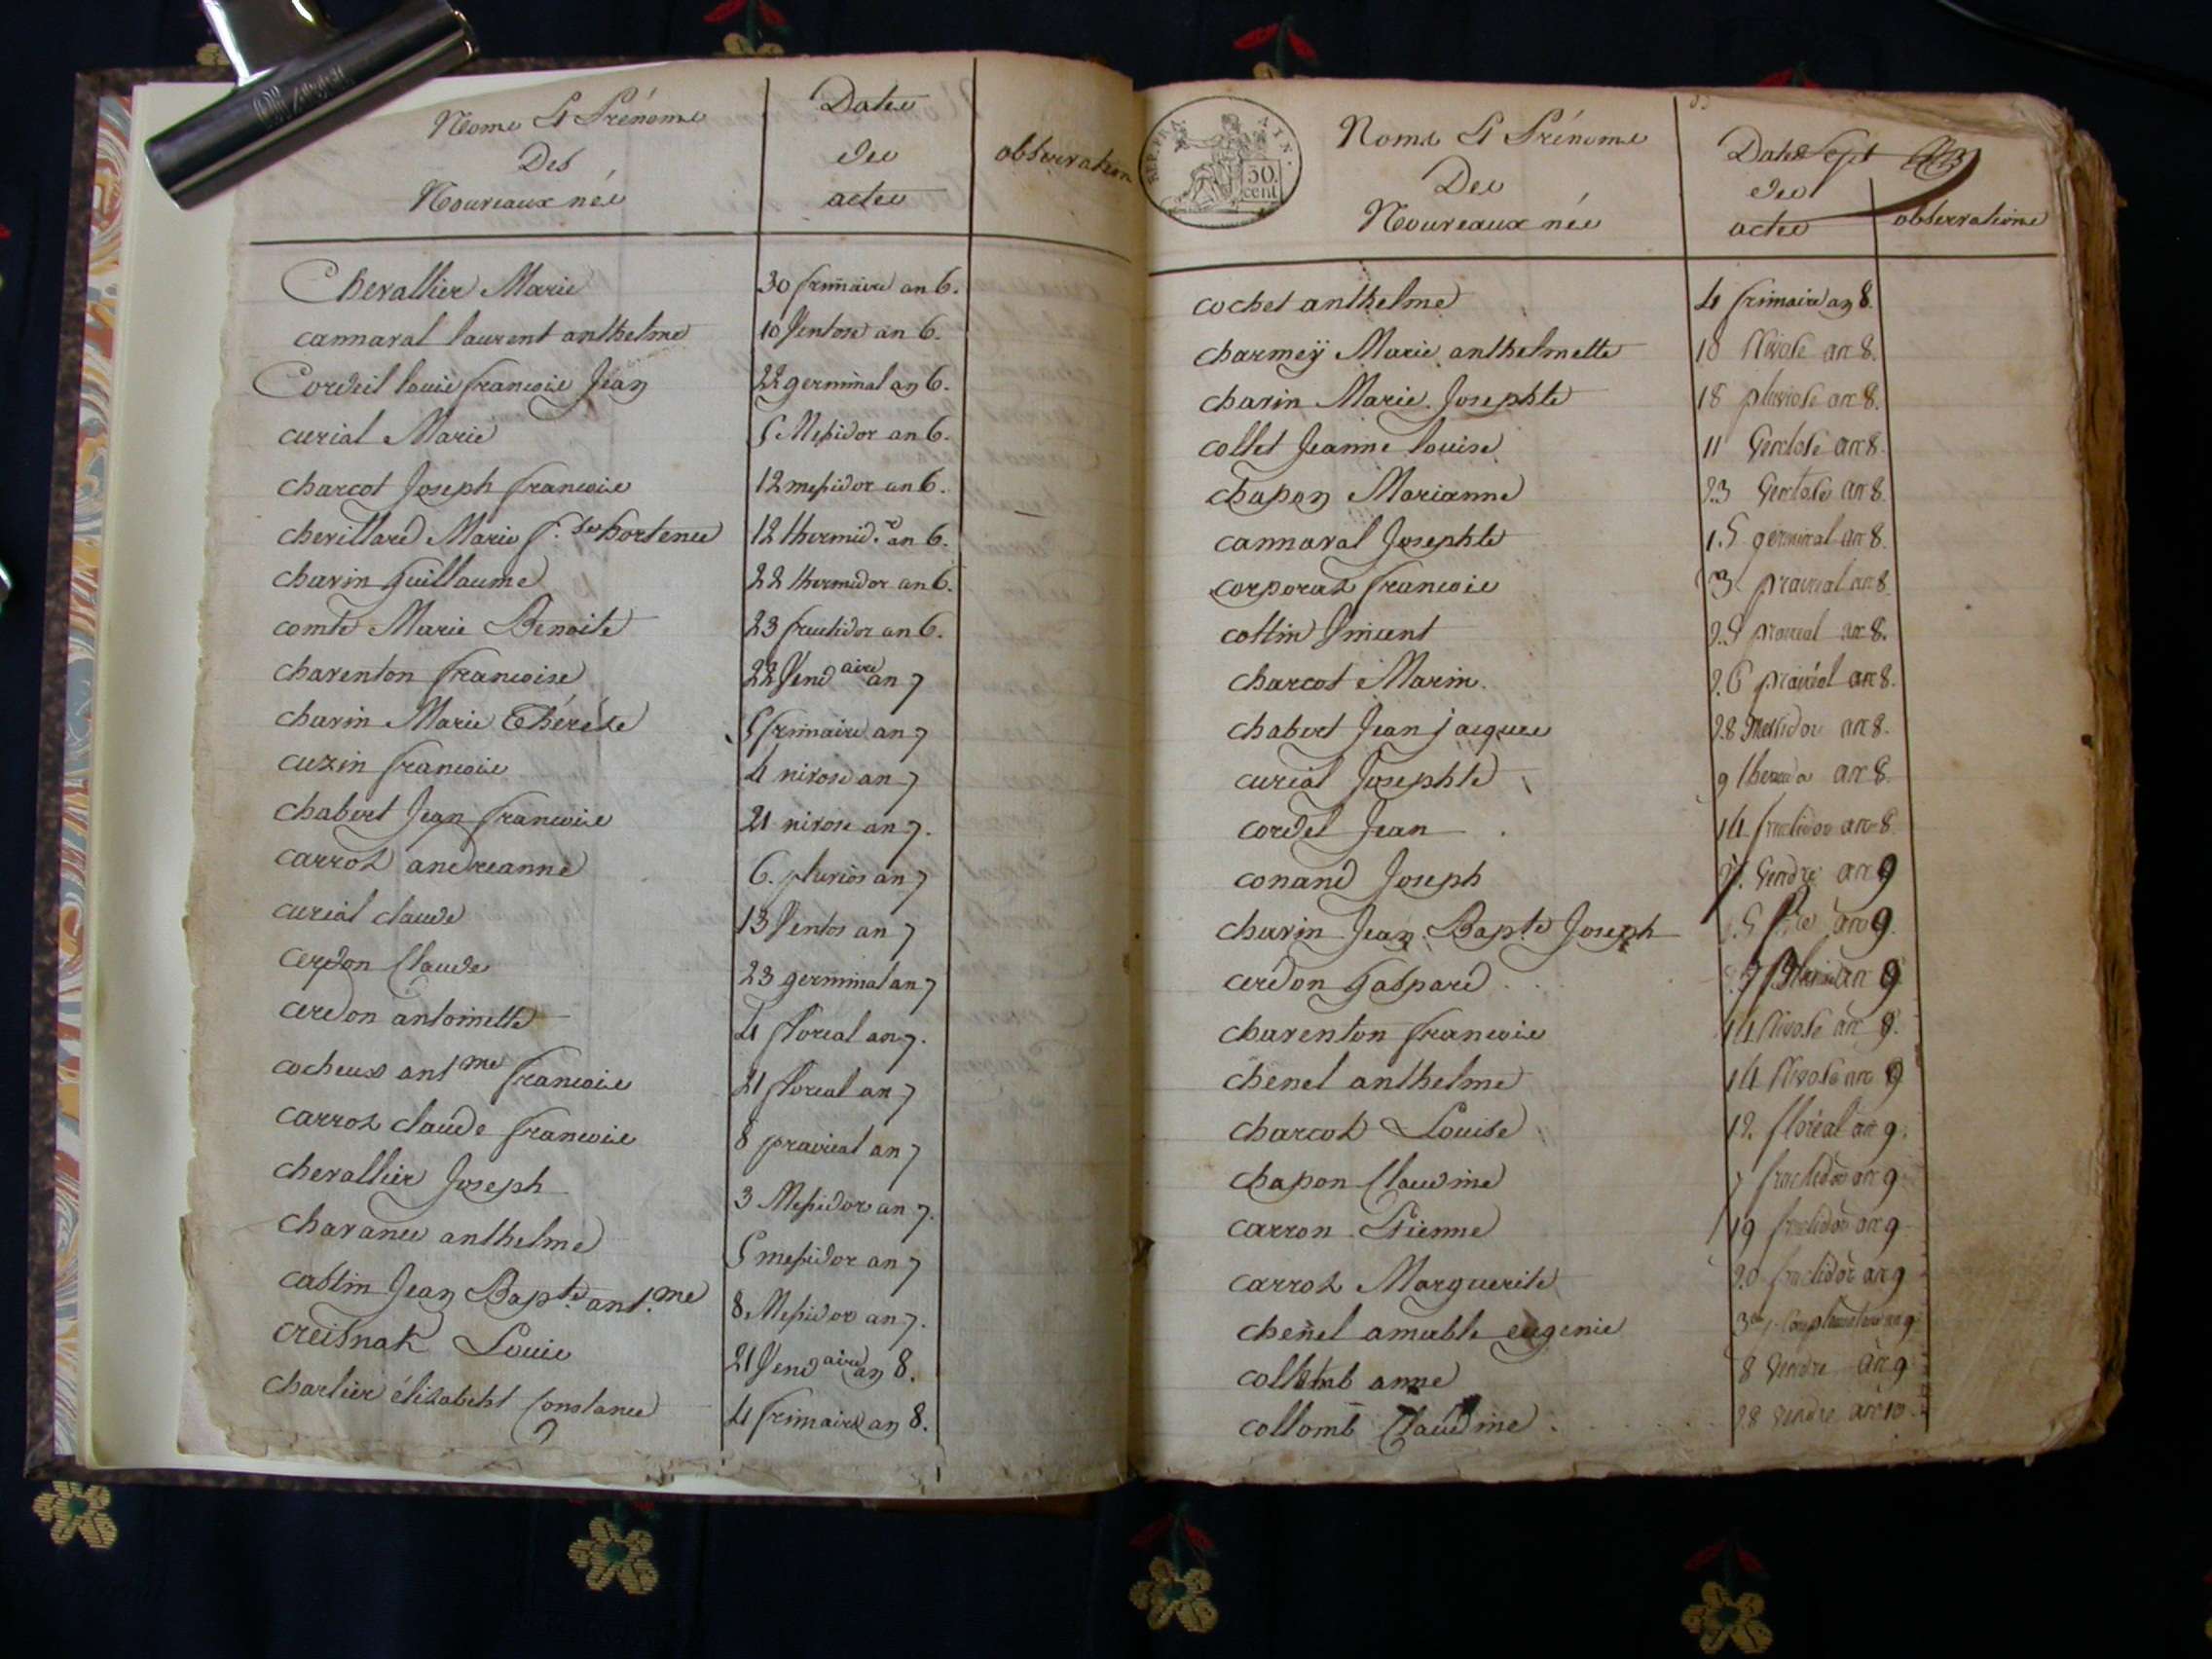 Noms Et Prénoms
Des
Nouveaux nés
Dates
des
actes
observation
Chevallier Marie 30 frimaire an 6.
cannaval laurent anthelme 10 Ventose an 6.
Cordeil louis francois Jean 22 germinal an 6.
curial Marie 5 Messidor an 6.
charcot Joseph francois 12 messidor an 6.
chevillard Marie f.se hortence 12 thermid.r an 6.
charin Guillaume 22 thermidor an 6.
comte Marie Benoite 23 fructidor an 6.
charenton francoise 22 Vend aire an 7
charin Marie Thérése 5 frimaire an 7
cuzin francois 4 nivose an 7
chabert Jean francois 21 nivose an 7.
carrot andreanne 6. pluvios an 7
curial claude 13 Ventos an 7
cerdon Claude 23 germinal an 7
cerdon antoinette 4 floreal an 7.
cocheux ant me francois 21 floreal an 7
carrot claude francois 8 prairial an 7
chevallier Joseph 3 Messidor an 7.
charance anthelme 5 messidor an 7
castin Jean Bap.te ant.me 8 Messidor an 7.
creisnak Louis 21 Vend aire an 8.
charlier élisabeht Constance 4 frimaire an 8.
REP. FRA.
50.
cent
Noms Et Prénoms
Des
Nouveaux nés
Dates Sept
des
actes
observations
cochet anthelme 4 frimaire an 8.
charmeÿ Marie anthelmette 18 Nivose an 8.
charin Marie Josephte 18 pluviose an 8.
collet Jeanne louise 11 Ventose an 8.
chapon Marianne 23 Ventose an 8.
cannaval Josephte 15 germinal an 8.
corporat francois 3 prairial an 8.
cottin Vincent 25 prairial an 8.
charcot Marin 26 prairial an 8.
chabert Jean jacques 28 Messidor an 8.
curial Josephte 9 thermidor an 8.
cordel Jean 14 fructidor an 8
conand Joseph Vendre an 9
charin Jean Bap.te Joseph an 9.
cerdon Gaspard an 9
charenton francois 14 Nivose an 9.
chenel anthelme 14 Nivose an 9
charcot Louise 12. floréal an 9.
chapon Claudine 7 fructidor an 9
carron Etienne 19 fructidor an 9
carrot Marguerite 20 fructidor an 9
chenel amable eugenie an 9
anne 8 Vendre an 9
collomb Claudine 28 Vendre an 10